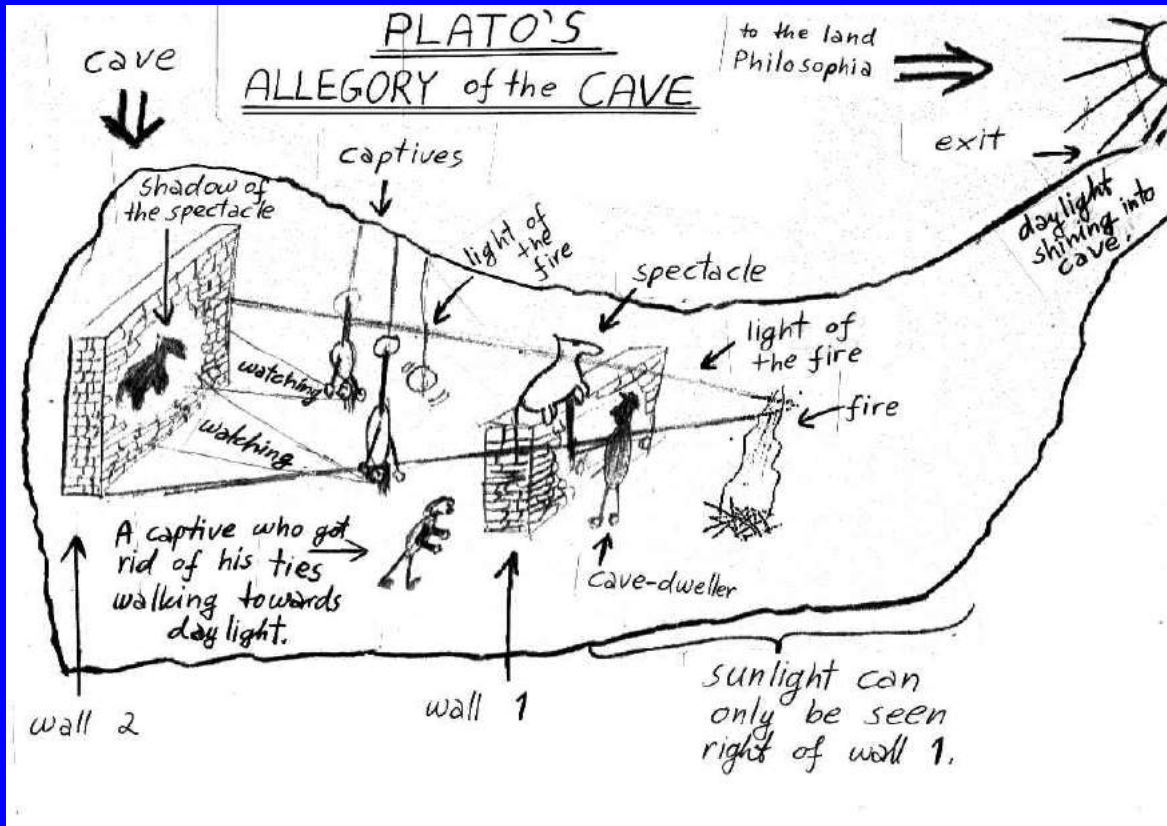 PLATO'S
ALLEGORY of the CAVE
cave
to the land
Philosophia
exit
captives
shadow of
the spectacle
light of
the
fire
spectacle
daylight
shining into
cave.
light of
the fire
fire
watching
watching
A captive who got
rid of his ties
walking towards
daylight.
cave-dweller
wall 2
wall 1
sunlight can
only be seen
right of wall 1.